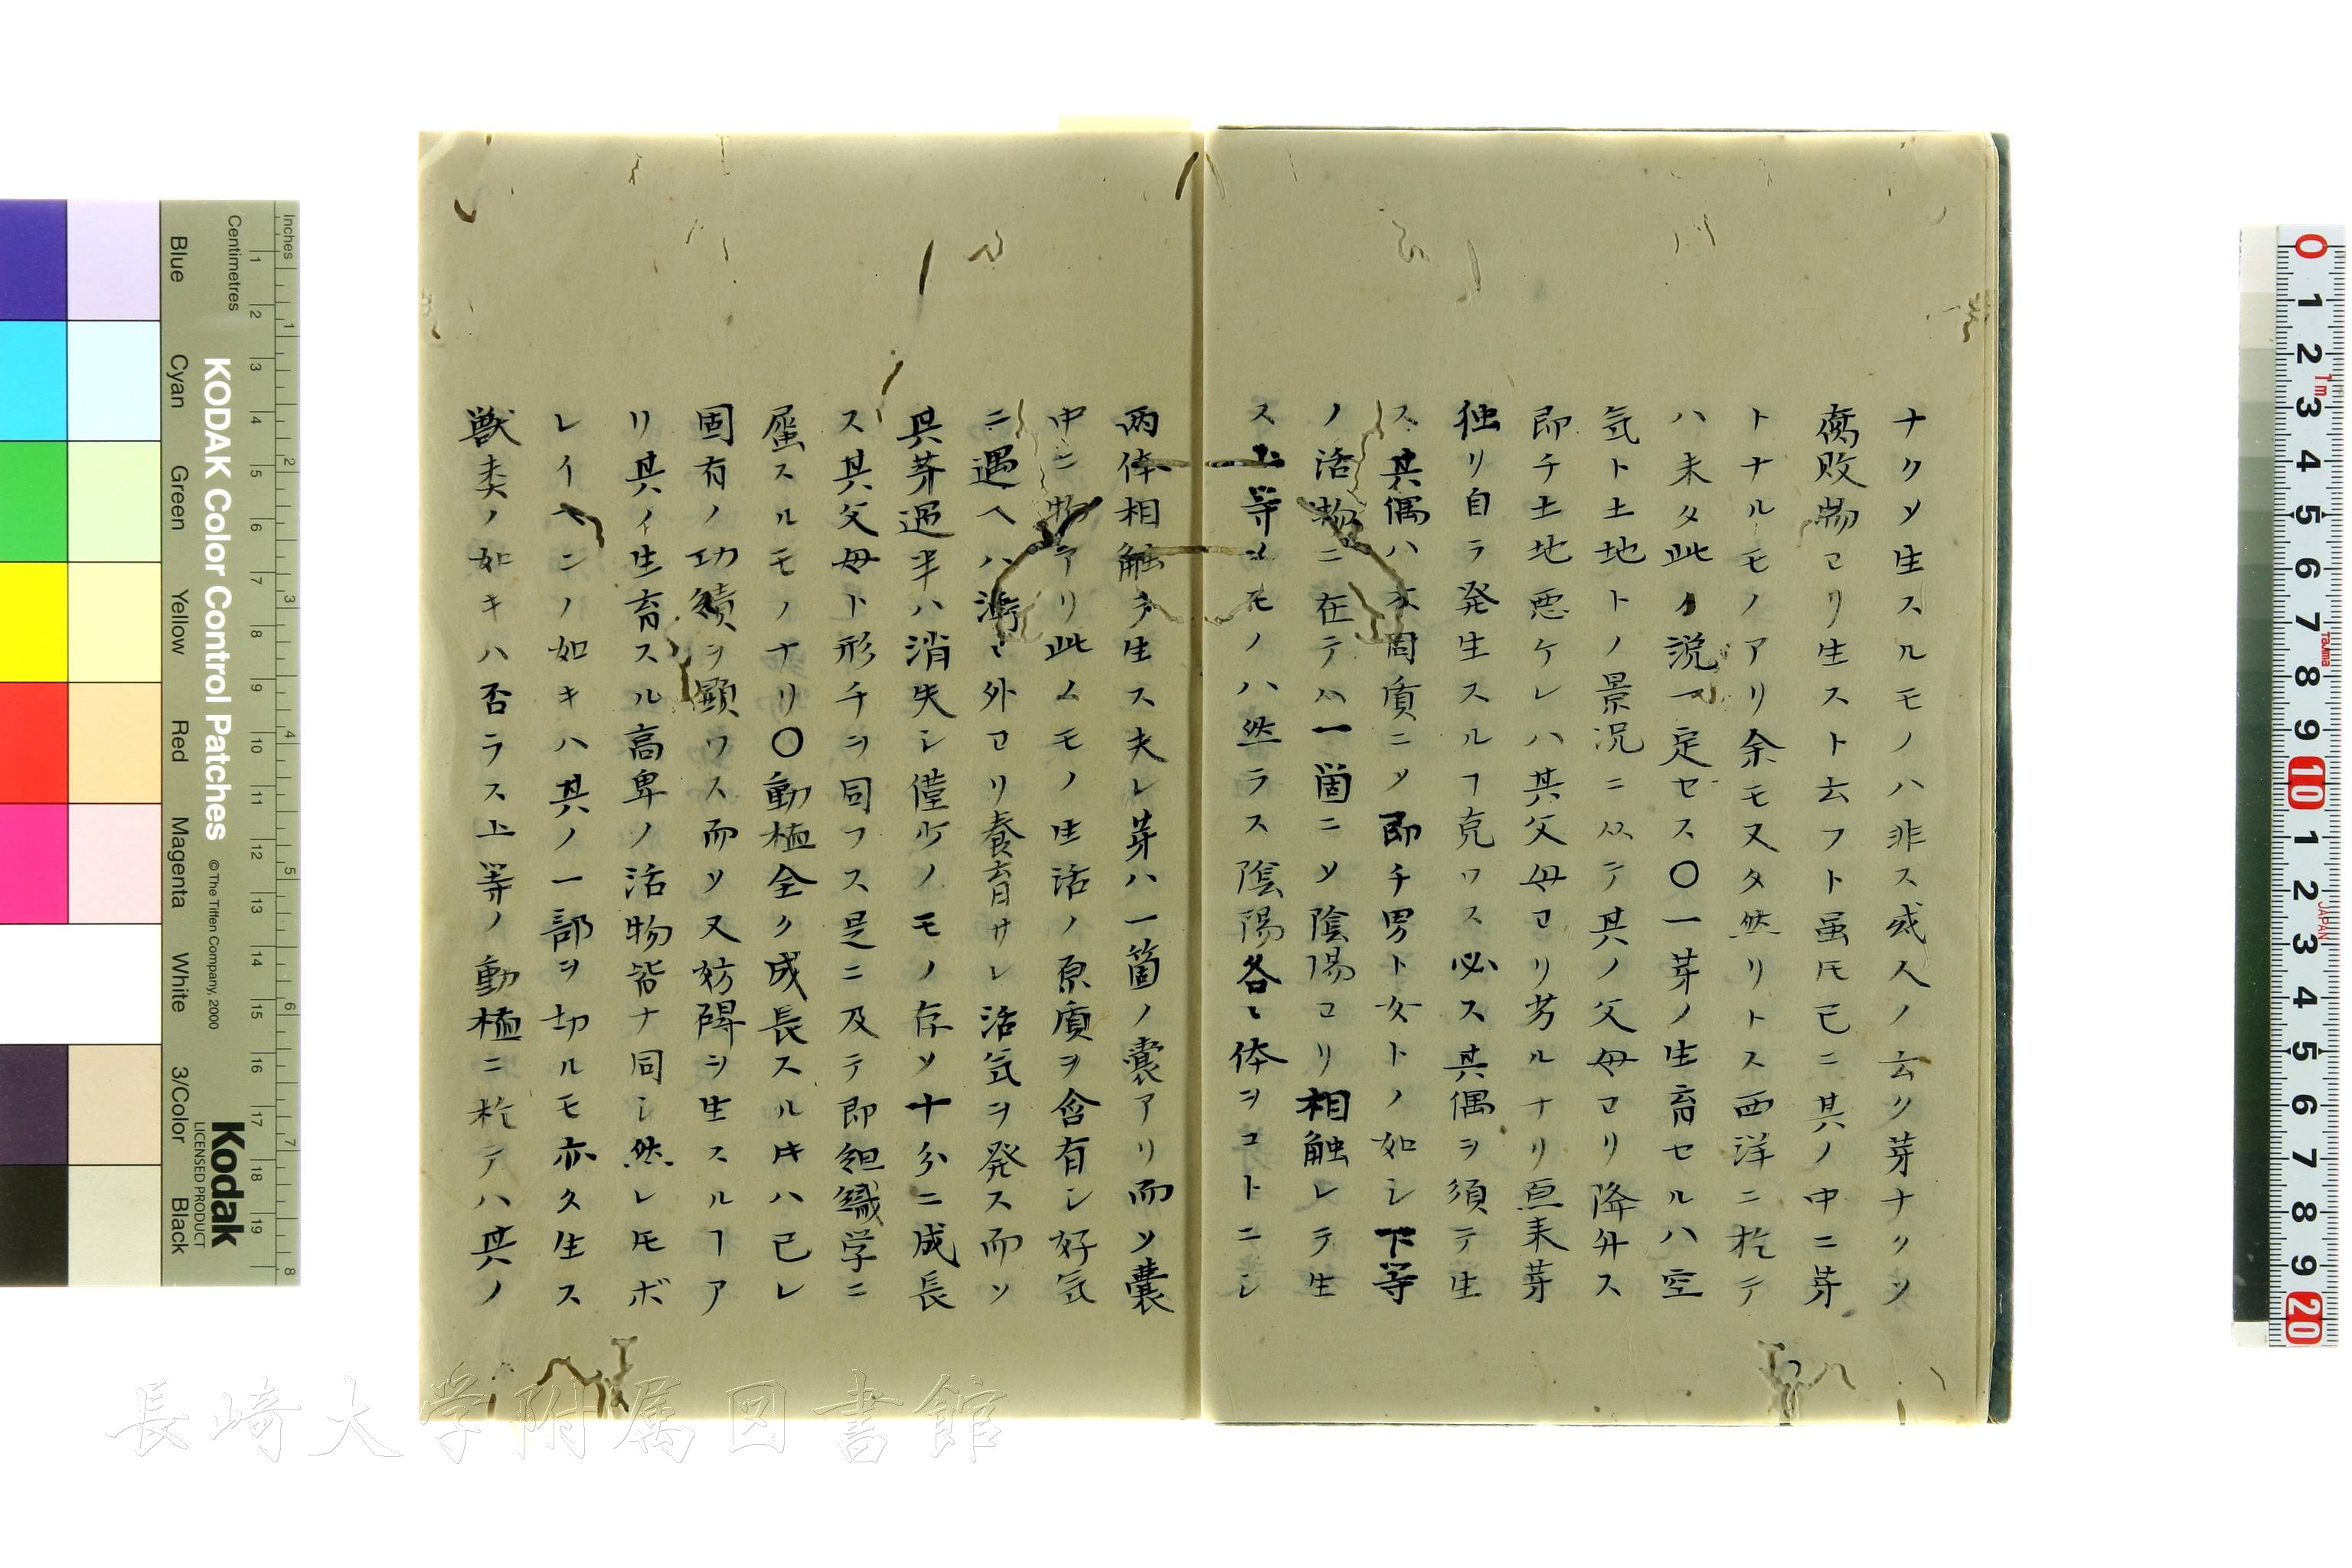 ナクソ生スルモノハ非ス或人ノ云ク芽ナクソ
腐敗物ヨリ生スト云フト虽𪜈已ニ其ノ中ニ芽
トナルモノアリ余モ又タ然リトス西洋ニ於テ
ハ未タ此ノ説一定セス〇一芽ノ生育セルハ空
気ト土地トノ景況ニ从テ其ノ父母ヨリ降升ス
即チ土地悪ケレハ其父母ヨリ劣ルナリ亘来芽
独リ自ラ発生スルヿ克ワス必ス其偶ヲ須テ生
ス其偶ハ亦同質ニソ即チ男ト女トノ如シ下等
ノ活物ニ在テハ一箇ニソ陰陽ヨリ相触レテ生
ス上等ノモノハ然ラス陰陽各〻体ヲコトニシ
両体相触テ生ス夫レ芽ハ一箇ノ嚢アリ而ソ嚢
中ニ物アリ此ノモノ生活ノ原質ヲ含有シ好気
ニ遇ヘハ漸ク外ヨリ養育サレ活気ヲ発ス而ソ
其芽過半ハ消失シ僅少ノモノ存ソ十分ニ成長
ス其父母ト形チヲ同フス是ニ及テ即組織学ニ
属スルモノナリ〇動植全ク成長スル𪜈ハ己レ
固有ノ功績ヲ顕ワス而ソ又妨碍ヲ生スルヿア
リ其ノ生育スル高卑ノ活物皆ナ同シ然レ𪜈ボ
レイヘニノ如キハ其ノ一部ヲ切ルモ亦久生ス
獣类ノ如キハ否ラス上等ノ動植ニ於テハ其ノ
KODAK Color Control Patches
© The Tiffen Company, 2000
Kodak
LICENSED PRODUCT
Inches
Centimetres
Blue
Cyan
Green
Yellow
Red
Magenta
White
3/Color
Black
長崎大学附属図書館